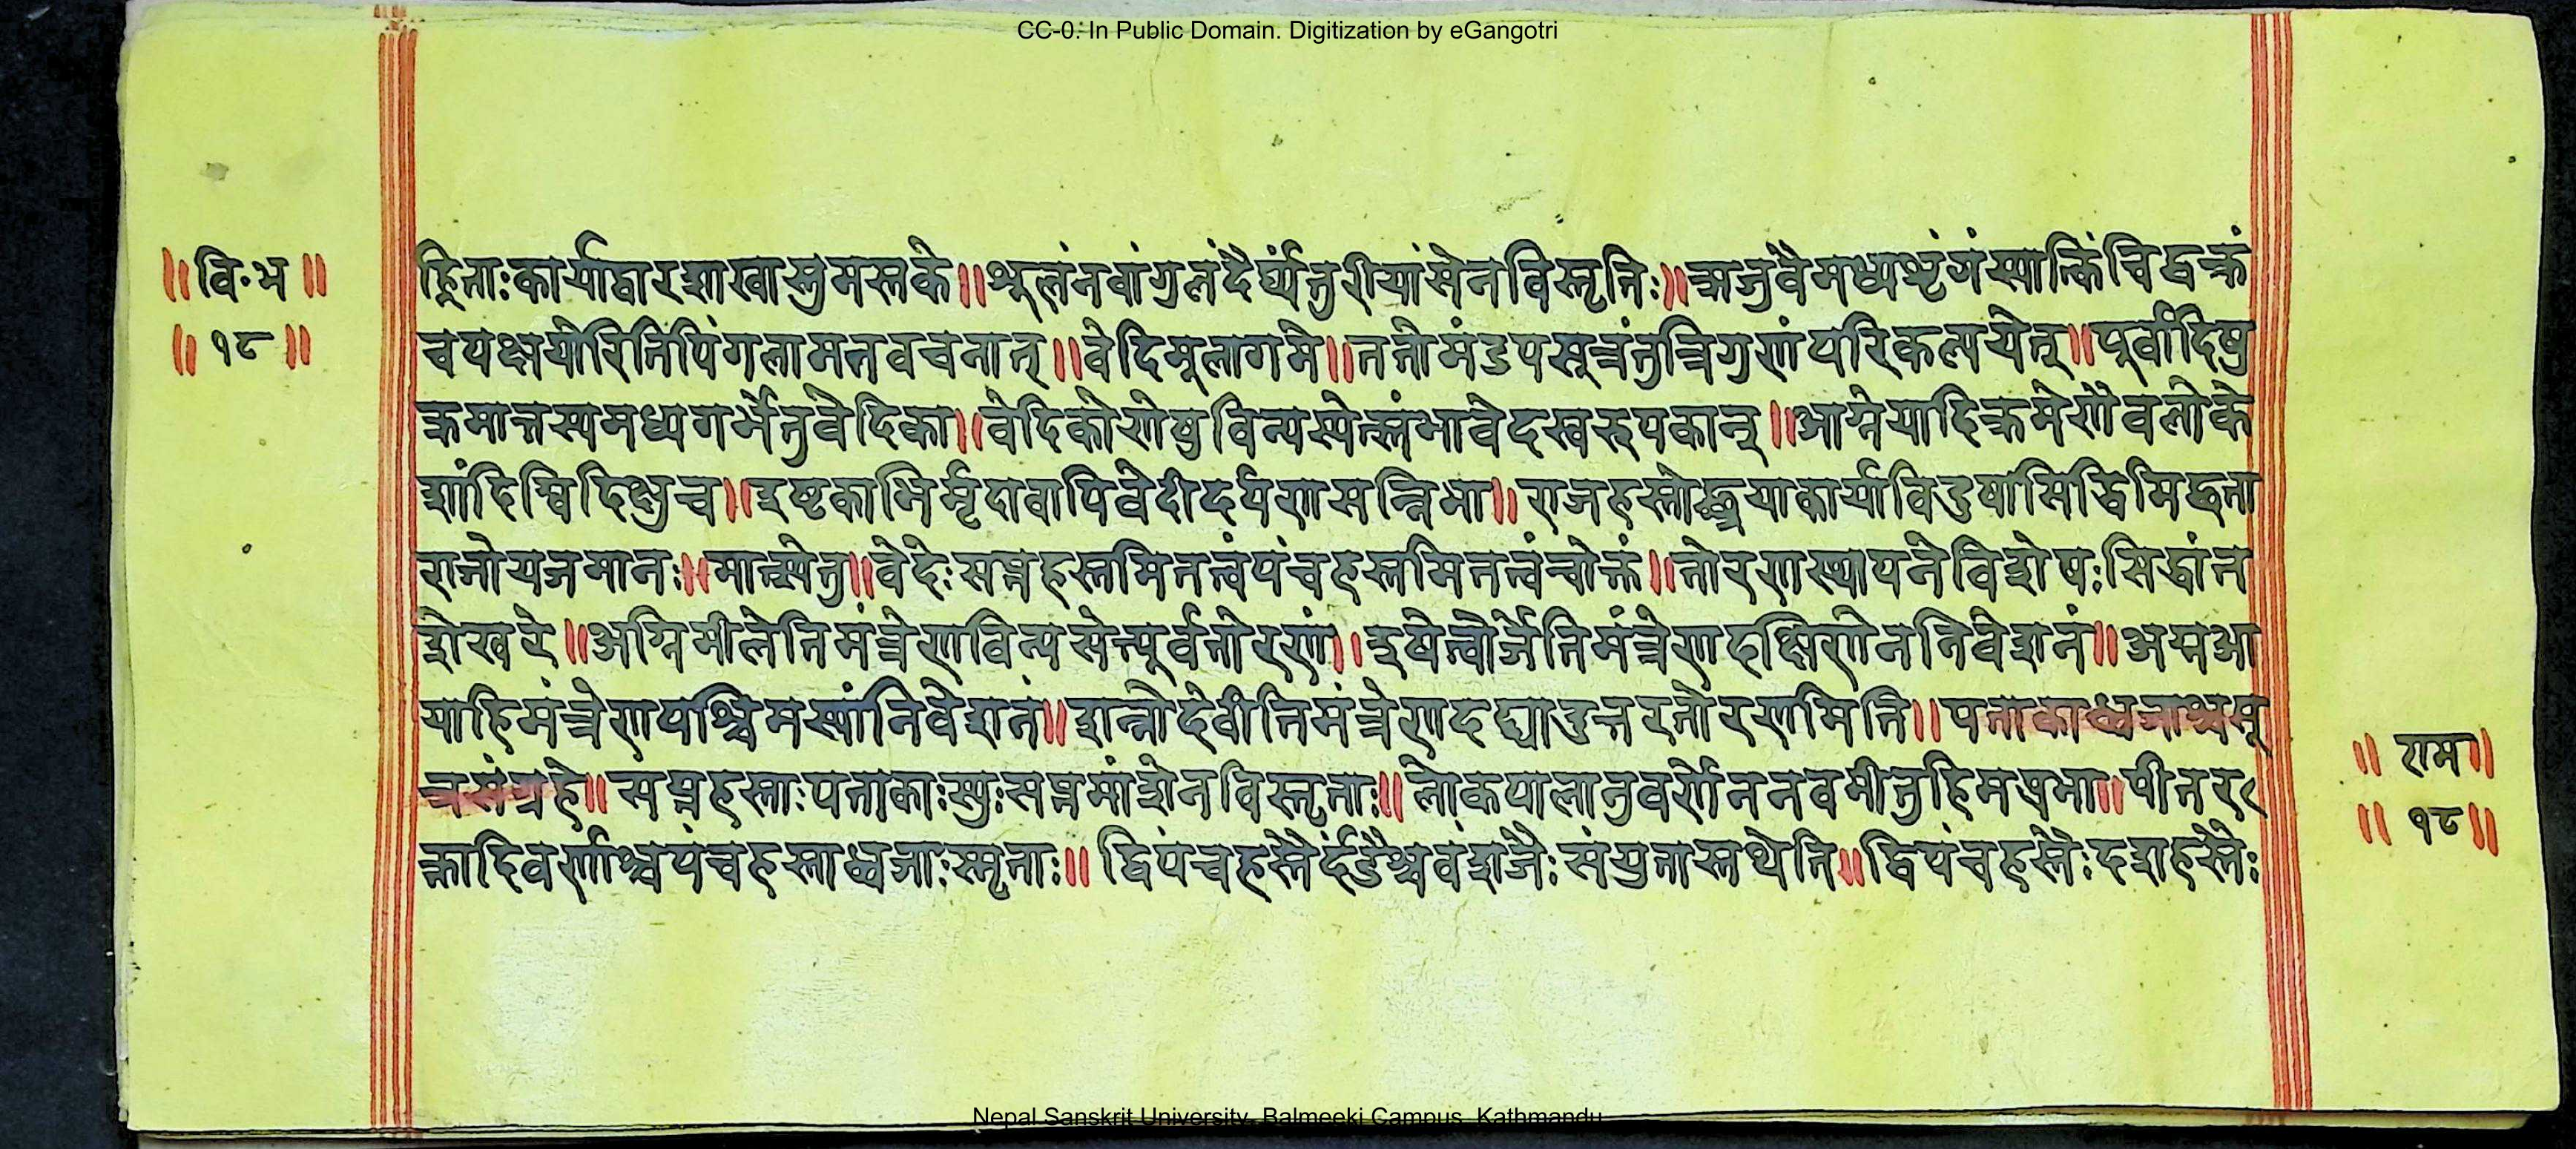 CC-0. In Public Domain. Digitization by eGangotri
॥ वि॰भ ॥
॥ १८ ॥
ह्निताःकार्याद्वारशाखास्तुमस्तके॥शूलंनवांगुलंदैर्घ्यंतुरीयांसेनविस्तृतिः॥ऋजुंवैमध्यशृंगंस्यात्किंचिद्वक्रं
चपक्षयोरितिपिंगलामतवचनात्॥वेदिमूलागमे॥ततोमंडपसूत्रंतुत्रिगुणंपरिकल्पयेत्॥पूर्वादिषु
क्रमात्तस्यमध्यगर्भेतुवेदिका॥वेदिकोणेषुविन्यस्येत्स्तंभावेदस्वरुपकान्॥आग्नेयादिक्रमेणैवलोके
शांदिग्विदिक्षुच॥इष्टकाभिर्मृदावापिवेदीदर्पणसन्निभा॥राजहस्तोच्छ्रयाकार्याविदुषांसिद्धिमिद्धता
रातोयजमानः॥मात्स्येतु॥वेदेःसप्तहस्तमितत्वंपंचहस्तमितत्वंचोक्तं॥तोरणस्थापनेविशेषःसिद्धांत
शेखरे॥अग्निमीलेतिमंत्रेणविन्यसेत्पूर्वतोरणं॥इषेत्वोर्जेतिमंत्रेणदक्षिणेननिवेशनं॥अग्नआ
याहिमंत्रेणपश्चिमस्यांनिवेशनं॥शन्नोदेवीतिमंत्रेणदद्यादुत्तरतोरणमिति॥पताकाध्वजाश्चमू
त्रसंग्रहे॥सप्तहस्ताःपताकाःस्युःसप्तमांशेनविस्तृताः॥लोकपालानुवर्णेननवमीतुहिमप्रभा॥पीतर
क्तादिवर्णाश्चपंचहस्ताध्वजाःस्मृताः॥द्विपंचहस्तैर्दंडैश्चवंशजैःसंयुतास्तथेति॥द्विपंचहस्तैःदशहस्तैः
॥ राम॥
॥ १८॥
Nepal Sanskrit University, Balmeeki Campus, Kathmandu